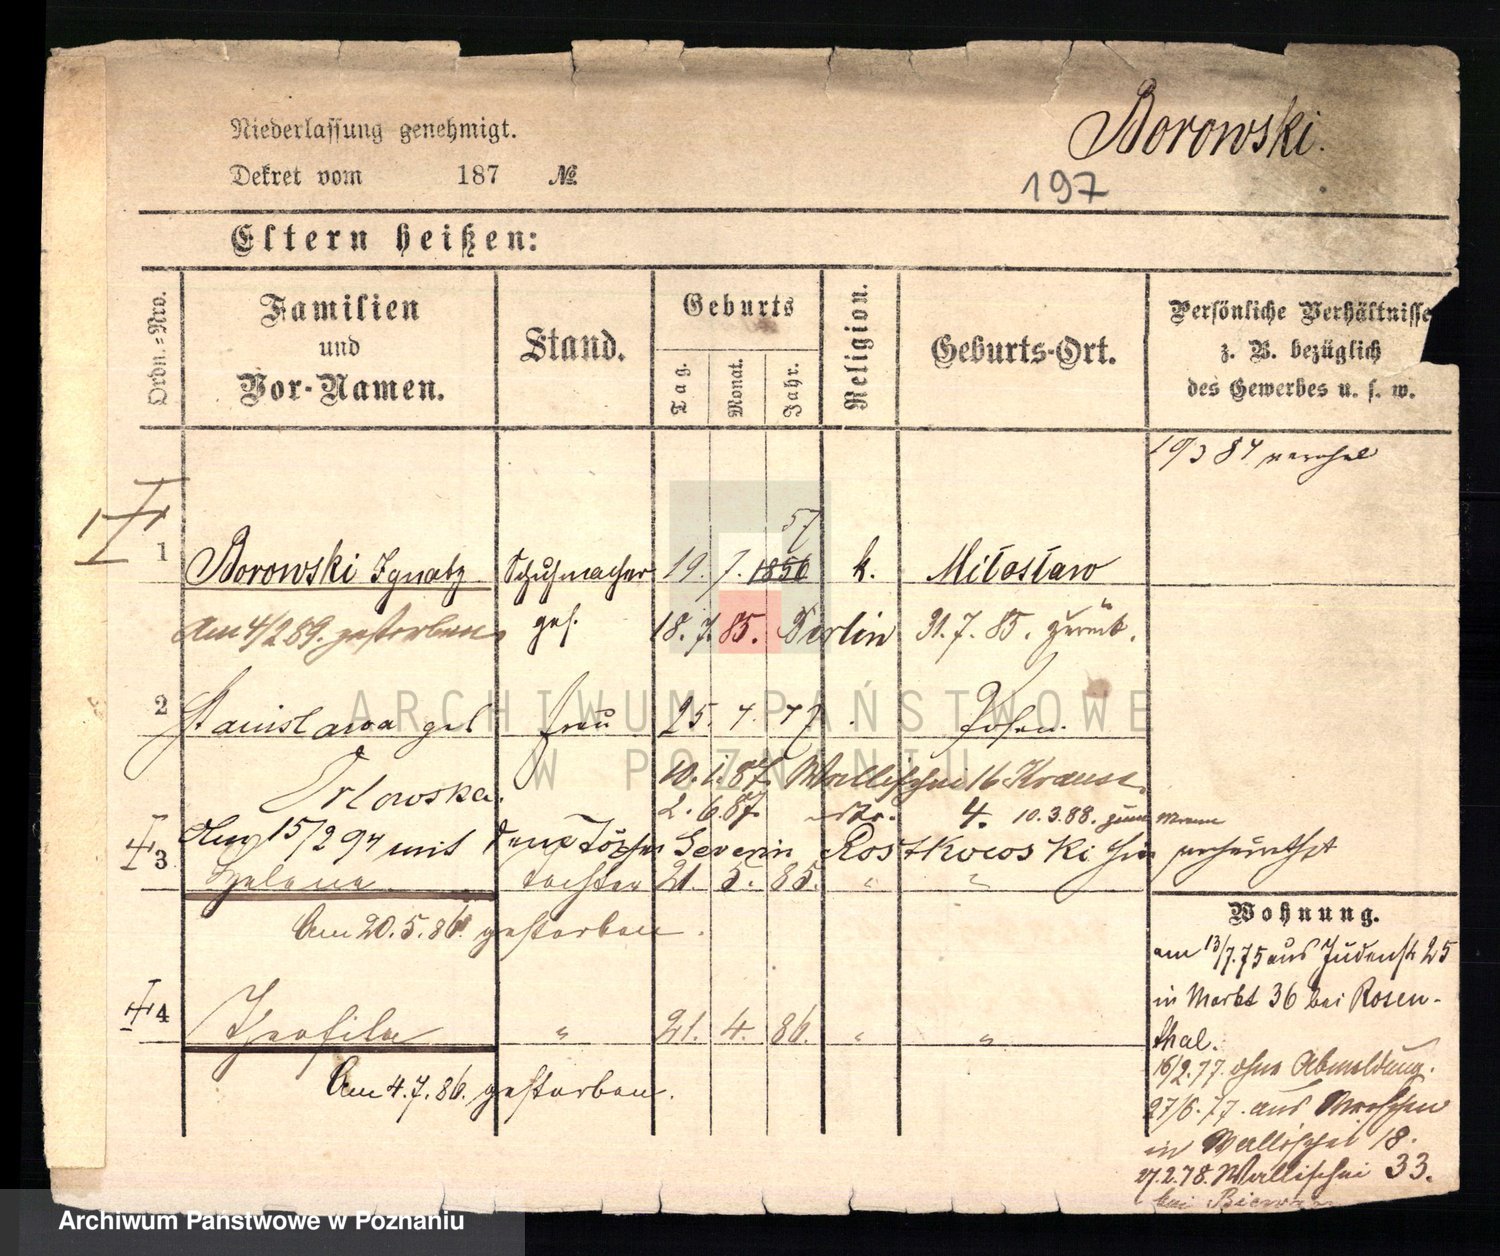 Niederlassung genehmigt.
Dekret vom 187 №
Borowski.
197
Eltern heißen:
Ordn.-Nro.
Familien
und
Vor-Namen.
Stand.
Geburts
Tag.
Monat.
Jahr.
Religion.
Geburts-Ort.
Persönliche Verhältnisse
z. B. bezüglich
des Gewerbes u. s. w.
19/3 84
57
1 Borowski Ignatz Schuhmacher 19. 7. 1856 k. Miłosław
Am 4/2 89. gestorben ges. 18. 7. 85. Berlin 31. 7. 85. zurück.
2 Stanislawa geb Frau 25. 4. Posen.
Orlowska. 10. 1. 87. Wallischei 16 Kramer
2. 6. 87. str. 4. 10.3.88. zum Mann
Am 15/2 94 mit dem Severin Rostkowski hier verheirathet
3 Helene Tochter 21. 5. 85. " "
Am 20. 5. 86. gestorben.
4 Theofila " 21. 4. 86. " "
Am 4. 7. 86. gestorben.
Wohnung.
am 13/7. 75 aus Judenstr 25
in Markt 36 bei Rosen-
thal.
16/2. 77. ohne Abmeldung.
27/6. 77. aus Wreschen
in Wallischei 18.
27. 2. 78. Wallischei 33.
bei
ARCHIWUM PAŃSTWOWE
W POZNANIU
Archiwum Państwowe w Poznaniu